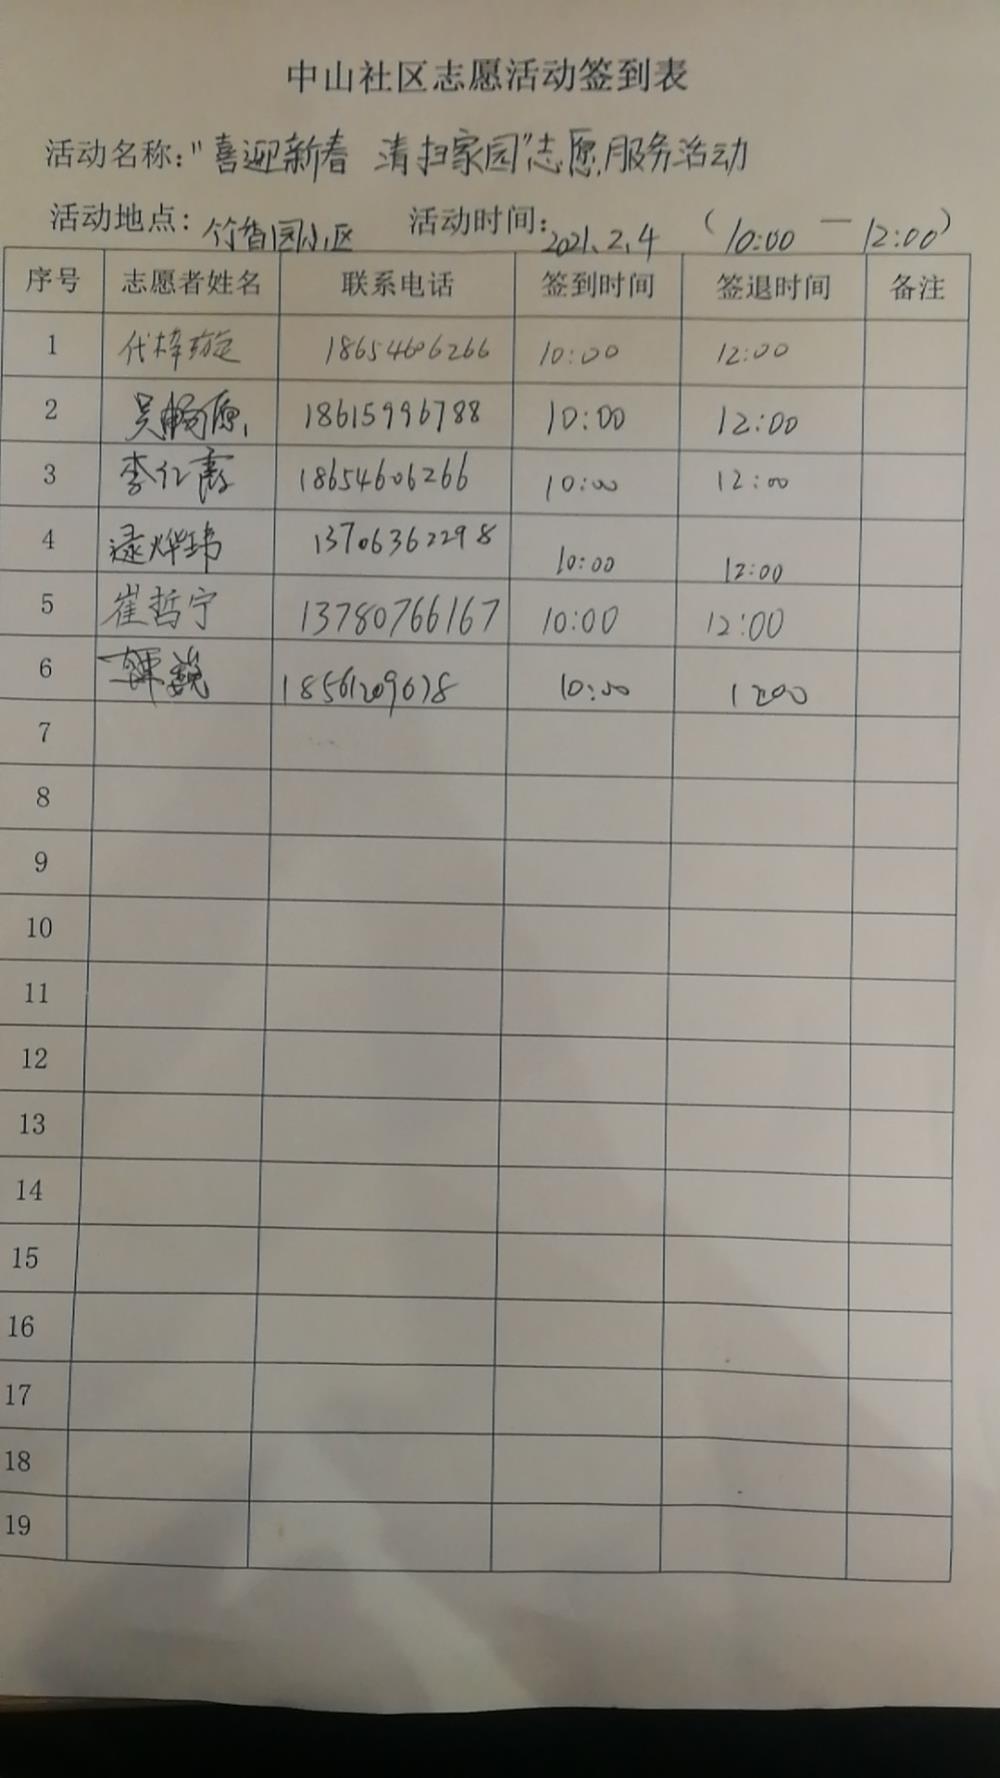 中山社区志愿活动签到表
活动名称："喜迎新春 清扫家园"志愿服务活动
活动地点：竹香园小区 活动时间：2021.2.4 （10:00 — 12:00）
序号 志愿者姓名 联系电话 签到时间 签退时间 备注
1 代梓 18654606266 10:00 12:00
2 吴畅原 18615996788 10:00 12:00
3 李仁 18654606266 10:00 12:00
4 逯烨玮 13706362298 10:00 12:00
5 崔哲宁 13780766167 10:00 12:00
6 18561209678 10:00 1200
7
8
9
10
11
12
13
14
15
16
17
18
19